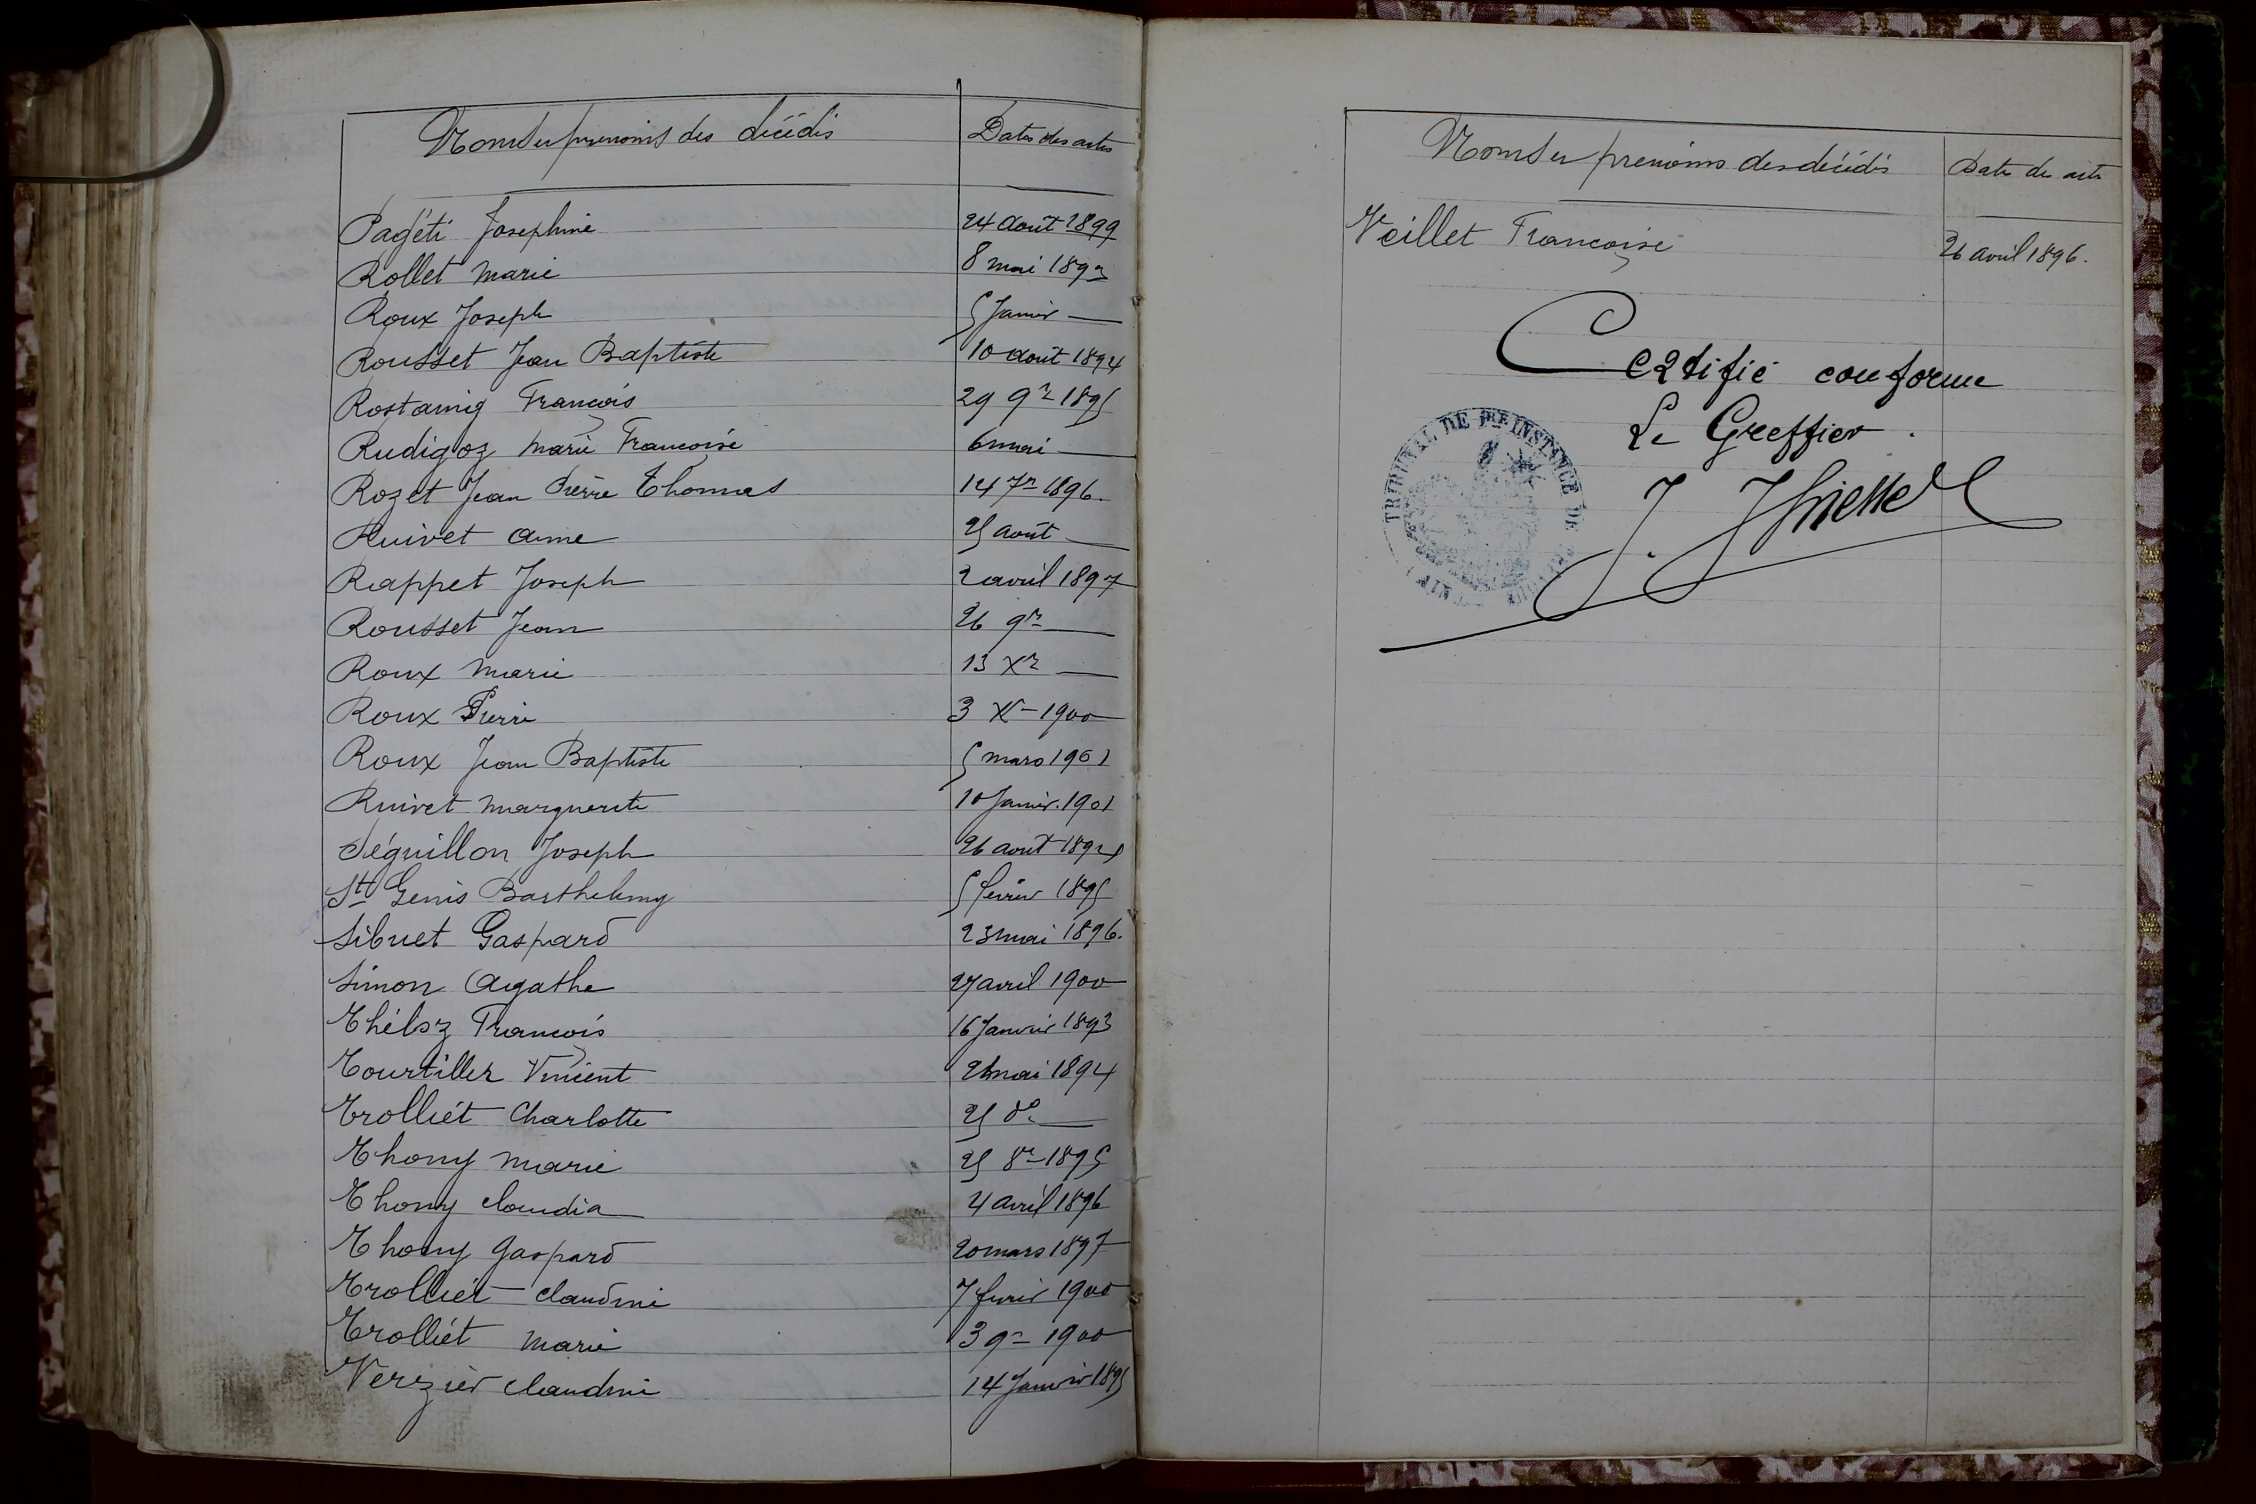 Noms et prenoms des décédés
Dates des actes
Pagéti Josephine 24 Août 1899
Rollet Marie 8 mai 1893
Roux Joseph 5 Janvier —
Rousset Jean Baptiste 10 août 1894
Rostaing François 29 9re 1895
Rudigoz Marie Françoise 6 mai —
Rozet Jean Pierre Thomas 14 7re 1896.
Ruivet Aimé 25 août —
Rappet Joseph 2 avril 1897
Rousset Jean 26 9re —
Roux Marie 13 Xre —
Roux Pierre 3 Xre 1900
Roux Jean Baptiste 5 mars 1901
Ruivet Marguerite 10 Janvier 1901
Séguillon Joseph 26 août 1894
St Genis Barthelemy 5 février 1895
Sibuet Gaspard 23 mai 1896.
Simon Agathe 27 avril 1900
Théloz François 16 Janvier 1893
Tourtiller Vincent 21 mai 1894
Trolliet Charlotte 25 do —
Thomy Marie 25 8re 1895
Thomy Claudia 4 avril 1896
Thomy Gaspard 20 mars 1897
Trolliet Claudine 7 février 1900
Trolliet Marie 3 9re 1900
Verzier Claudine 14 Janvier 1895
Noms et prenoms des décédés
Date des actes
Veillet Françoise 26 avril 1896.
Certifié conforme
Le Greffier.
TRIBUNAL DE 1ERE INSTANCE DE
AIN